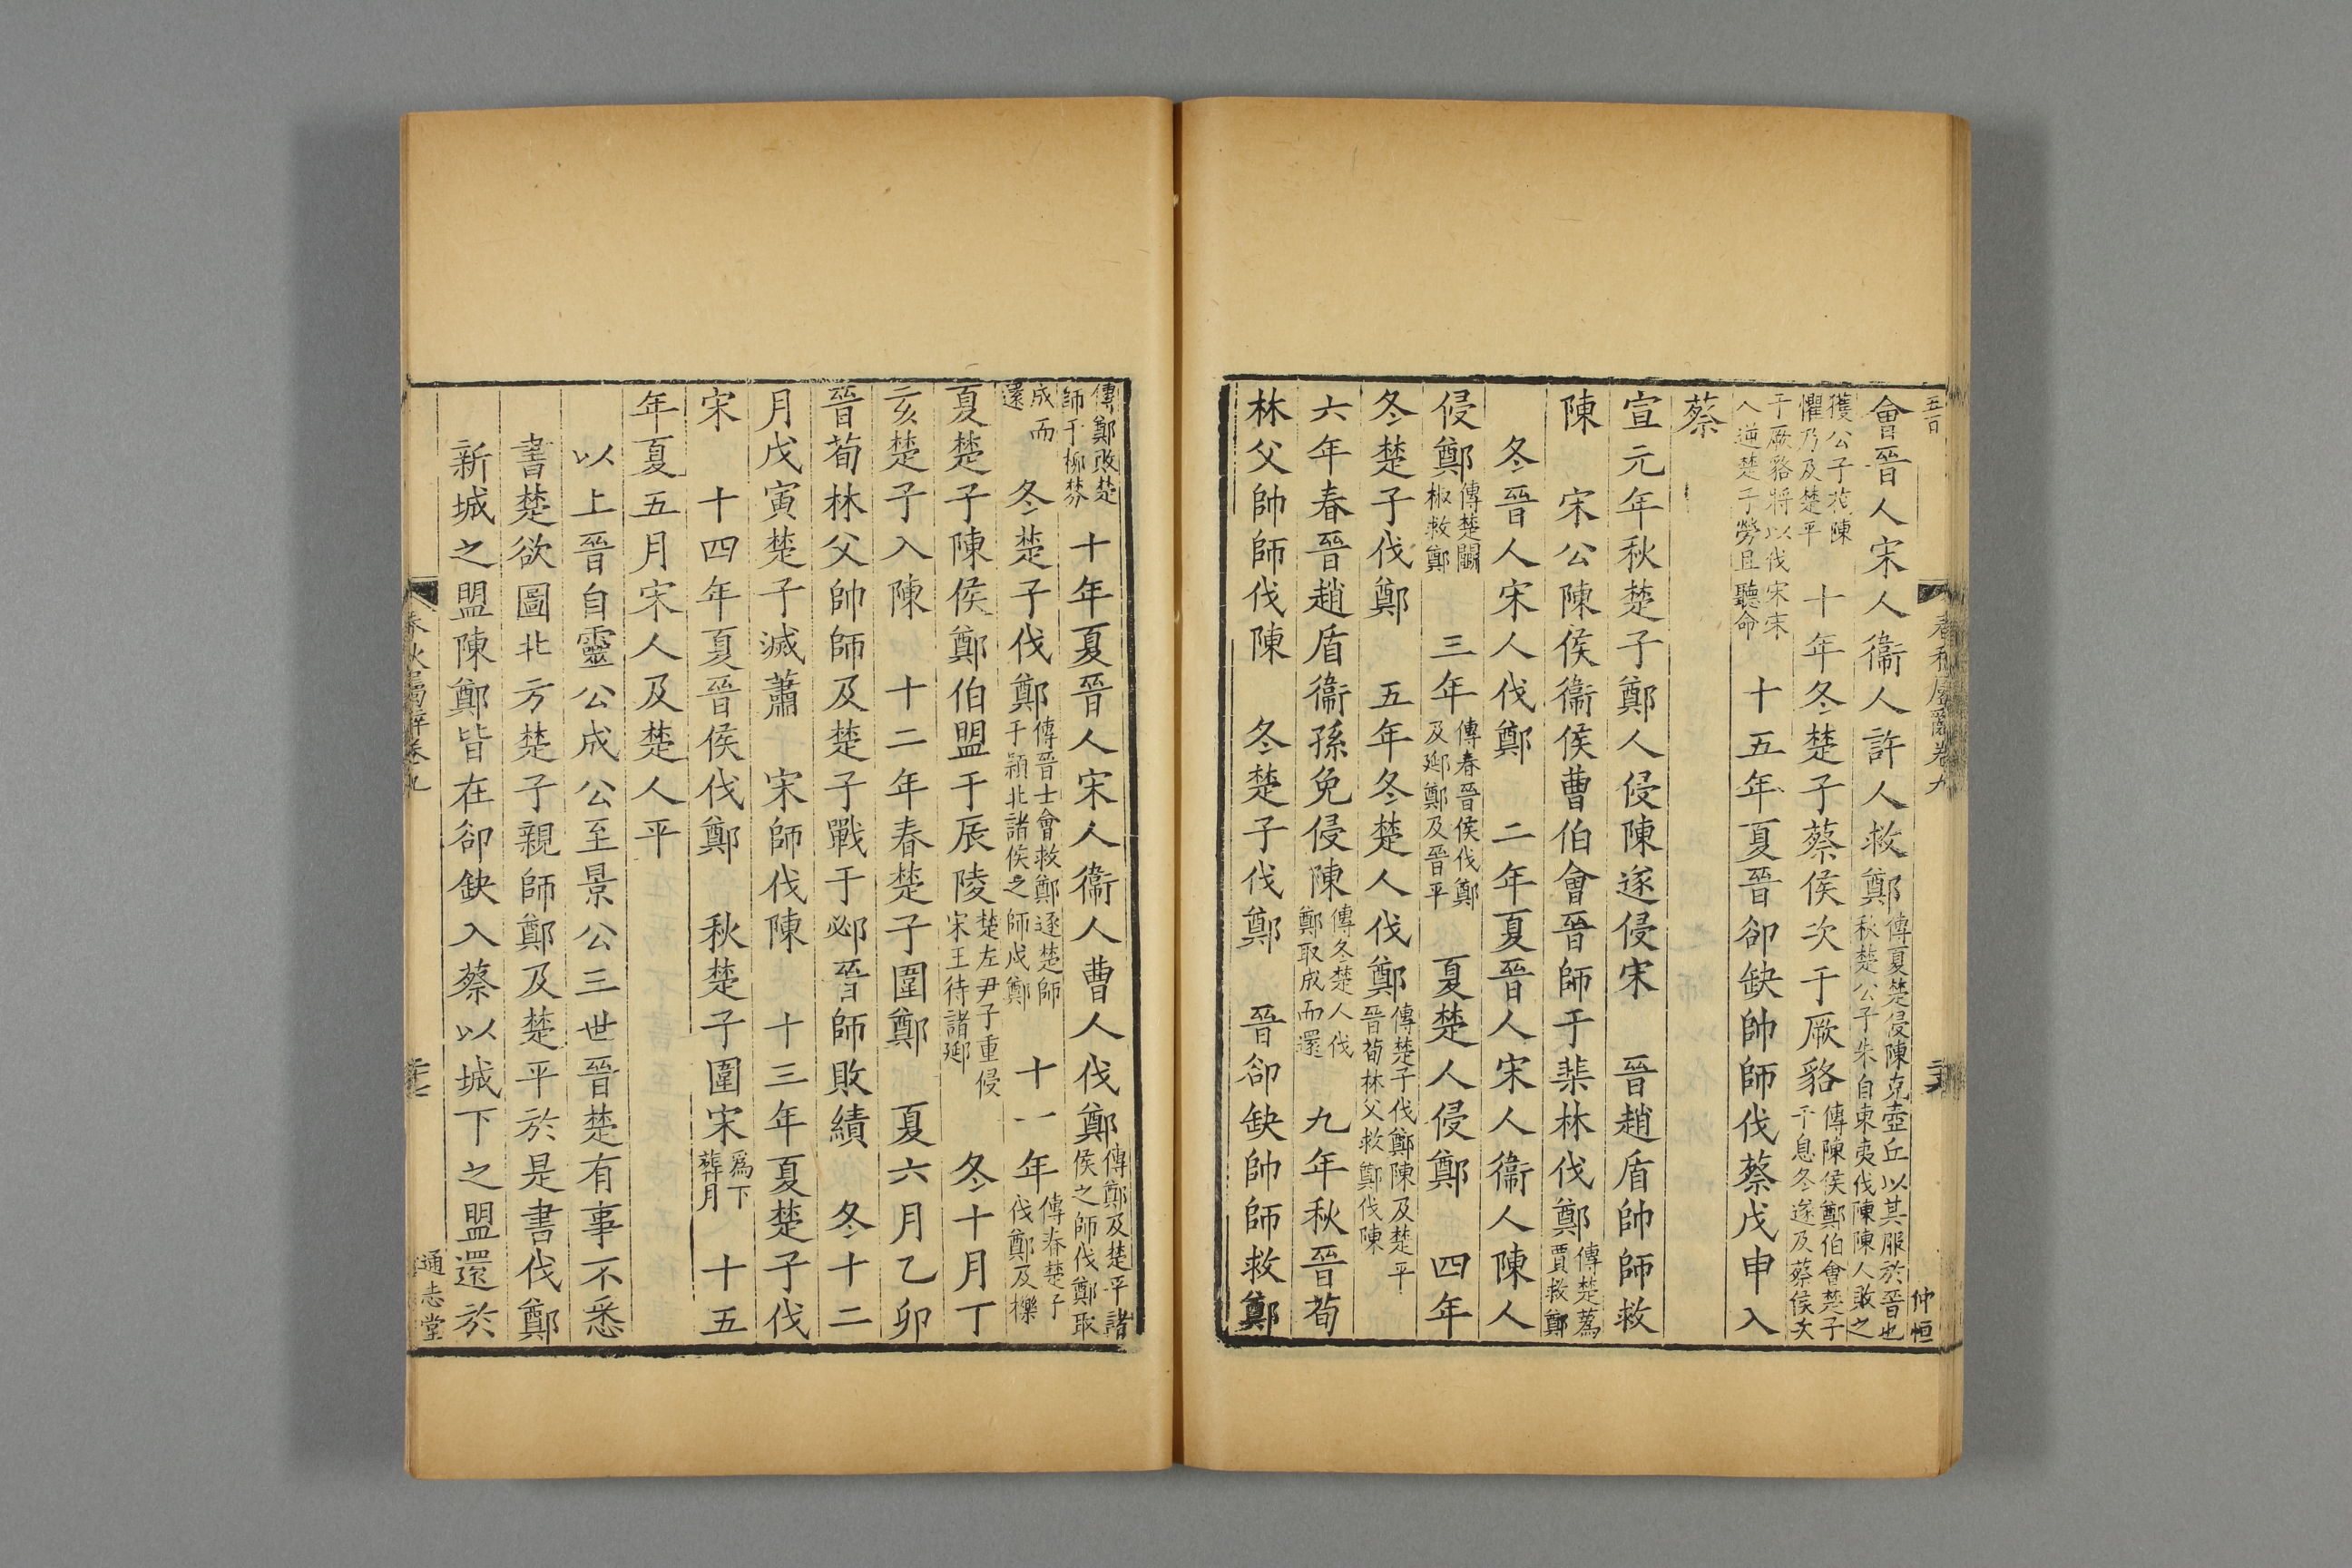 五百
春秋屬辭卷九
仲恒
會晉人宋人衞人許人救鄭傳夏楚侵陳克壺丘以其服於晉也秋楚公子朱自東夷伐陳陳人敗之
獲公子茷陳懼乃及楚平 十年冬楚子蔡侯次于厥貉傳陳侯鄭伯會楚子于息冬遂及蔡侯次
于厥貉將以伐宋宋人逆楚子勞且聽命 十五年夏晉郤缺帥師伐蔡戊申入
蔡
宣元年秋楚子鄭人侵陳遂侵宋 晉趙盾帥師救
陳 宋公陳侯衞侯曹伯會晉師于棐林伐鄭傳楚蒍賈救鄭
冬晉人宋人伐鄭 二年夏晉人宋人衞人陳人
侵鄭傳楚鬭椒救鄭 三年傳春晉侯伐鄭及郔鄭及晉平 夏楚人侵鄭 四年
冬楚子伐鄭 五年冬楚人伐鄭傳楚子伐鄭陳及楚平晉荀林父救鄭伐陳
六年春晉趙盾衞孫免侵陳傳冬楚人伐鄭取成而還 九年秋晉荀
林父帥師伐陳 冬楚子伐鄭 晉郤缺帥師救鄭
傳鄭敗楚師于柳棼 十年夏晉人宋人衞人曹人伐鄭傳鄭及楚平諸侯之師伐鄭取
成而還 冬楚子伐鄭傳晉士會救鄭逐楚師于潁北諸侯之師戍鄭 十一年傳春楚子伐鄭及櫟
夏楚子陳侯鄭伯盟于辰陵楚左尹子重侵宋王待諸郔 冬十月丁
亥楚子入陳 十二年春楚子圍鄭 夏六月乙卯
晉荀林父帥師及楚子戰于邲晉師敗績 冬十二
月戊寅楚子滅蕭 宋師伐陳 十三年夏楚子伐
宋 十四年夏晉侯伐鄭 秋楚子圍宋爲下葬月 十五
年夏五月宋人及楚人平
以上晉自靈公成公至景公三世晉楚有事不悉
書楚欲圖北方楚子親師鄭及楚平於是書伐鄭
新城之盟陳鄭皆在郤缺入蔡以城下之盟還於
春秋屬辭卷九
通志堂